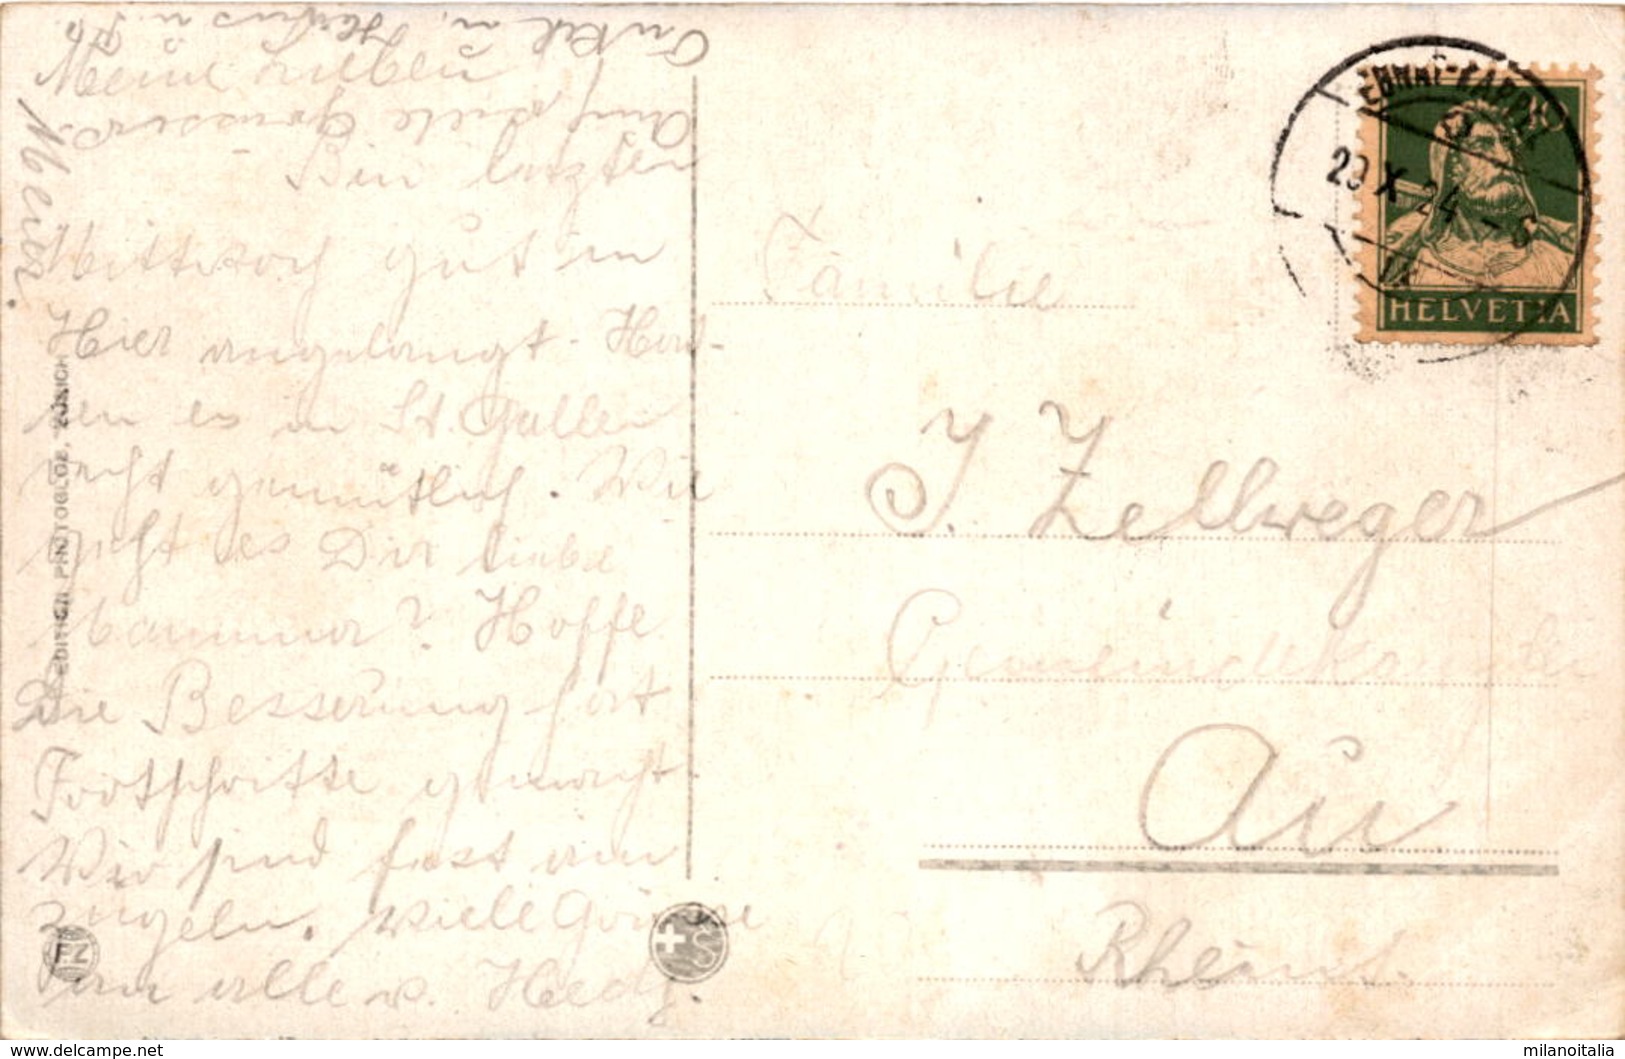 Meine Lieben
Bin letzten
Mittwoch gut in
Hier angelangt. Hat-
ten es in St. Gallen
recht gemütlich. Wie
geht es Dir liebe
Mamma? Hoffe
Die Besserung hat
Fortschritte gemacht.
Wir sind fast am
zügeln. Viele Grüsse
an alle v. Hedy.
Auch viele Grüsse v.
Onkel u.
Meier.
EDITION PHOTOGLOB, ZÜRICH
PZ
EBNAT-KAPPEL
29 X 24 - 6
10
HELVETIA
Familie
J. Zellweger
Gemeindekanzlei
Au
Rheint.
www.delcampe.net
milanoitalia